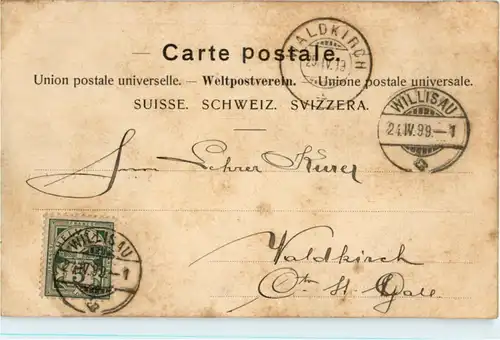 WALDKIRCH
Carte postale.
Union postale universelle. — Weltpostverein. — Unione postale universale.
SUISSE. SCHWEIZ. SVIZZERA.
WILLISAU
24.IV.99.–1
Herrn Lehrer
WILLISAU
IV.99.–1
Waldkirch
Ct. St. Gall